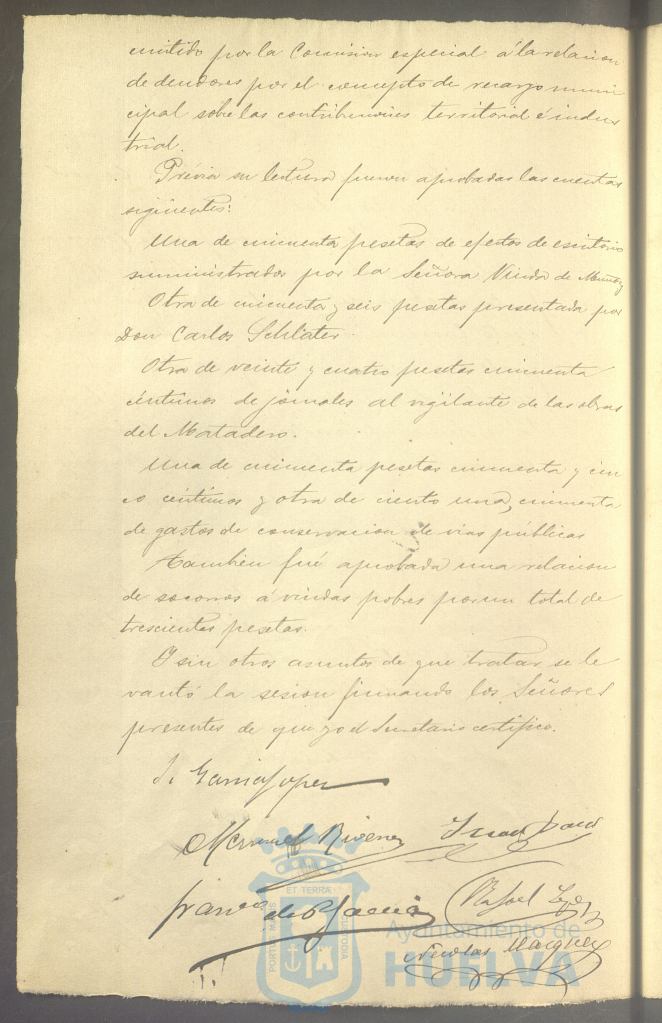 emitido por la Comision especial á la relacion
de deudores por el concepto de recargo muni
cipal sobre las contribuciones territorial é indus
trial.
Prévia su lectura fueron aprobadas las cuentas
siguientes:
Una de cincuenta pesetas de efectos de escritorio
suministrados por la Señora Viuda de Muñoz
Otra de cincuenta y seis pesetas presentada por
Don Carlos Schlater.
Otra de veinte y cuatro pesetas cincuenta
céntimos de jornales al vigilante de las obras
del Matadero.
Una de cincuenta pesetas cincuenta y cin
co céntimos y otra de ciento una, cincuenta
de gastos de conservacion de vias públicas
Tambien fué aprobada una relacion
de socorros á viudas pobres por un total de
trescientas pesetas.
Y sin otros asuntos de que tratar se le
vantó la sesion firmando los Señores
presentes de que yo el Secretario certifico.
J. Garcia Lopez
Manuel Rivera
Juan
Franco de P. Garcia
Rafael Lopez
Nicolas Marquez
PORTUS MARIS
ET TERRÆ
CUSTODIA
Ayuntamiento de
HUELVA